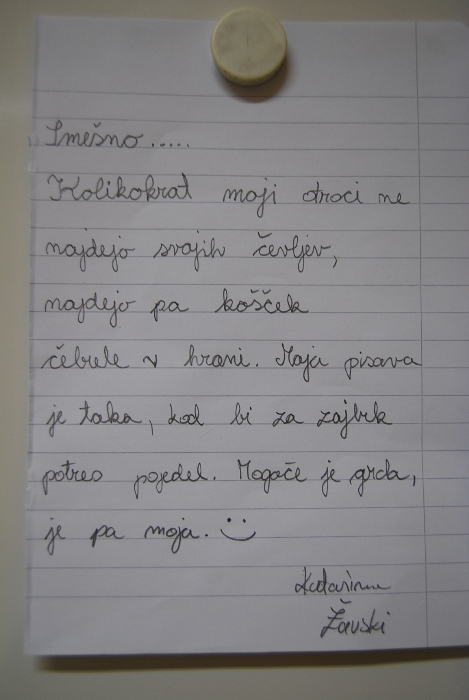 Smešno.....
Kolikokrat moji otroci ne
najdejo svojih čevljev,
najdejo pa košček
čebule v hrani. Moja pisava
je taka, kot bi za zajtrk
potres pojedel. Mogoče je grda,
je pa moja. :)
Katarina